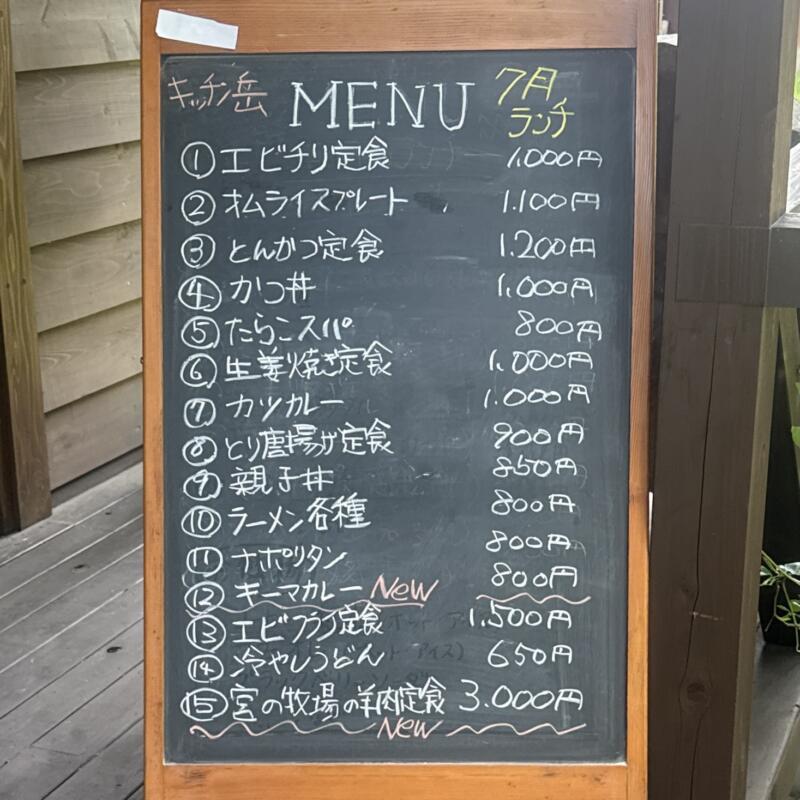 キッチン岳 MENU 7月
ランチ
① エビチリ定食 1,000円
② オムライスプレート 1.100円
③ とんかつ定食 1.200円
④ かつ丼 1,000円
⑤ たらこスパ 800円
⑥ 生姜焼き定食 1,000円
⑦ カツカレー 1.000円
⑧ とり唐揚げ定食 900円
⑨ 親子丼 850円
⑩ ラーメン各種 800円
⑪ ナポリタン 800円
⑫ キーマカレー New 800円
⑬ エビフライ定食 1,500円
⑭ 冷やしうどん 650円
⑮ 宮の牧場の羊肉定食 3.000円
New